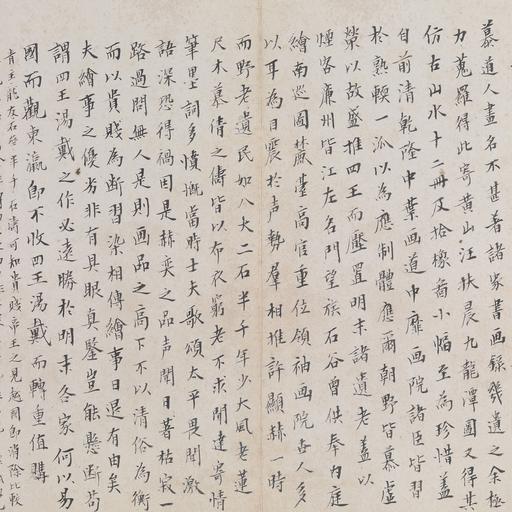 慕道人畫名不甚著諸家書画録幾遺之余極
力蒐羅得此寄黄山汪扶晨九龍潭圖又得其
仿古山水十二冊及拾橡嗇小幅至為珍惜蓋
自前清乾隆中葉画道中靡画院諸臣皆習
於熟輭一泒以為應制體應爾朝野皆慕虚
榮以故盛推四王而壓置明末諸遺老蓋以
煙客廉州皆江左名門望族石谷曾供奉内庭
繪南巡圖麓臺高官重位領袖画院世人多
以耳為目震於声勢羣相推許顯赫一時
而野老遺民如八大二石半千年少大風老蓮
尺木慕倩之儔皆以布衣窮老不求聞達寄情
筆墨詞多憤慨當時士夫歌頌太平畏聞激
語深恐得禍因是赫奕之品声聞日著枯寂一
路過問無人是則画品之高下不以清俗為衡
而以貴賤為断習染相傳繪事日退有由矣
夫繪事之優劣非有具眼真鑒豈能懸断苟
謂四王湯戴之作必遠勝於明末各家何以易
國而觀東瀛即不收四王湯戴而轉重值購